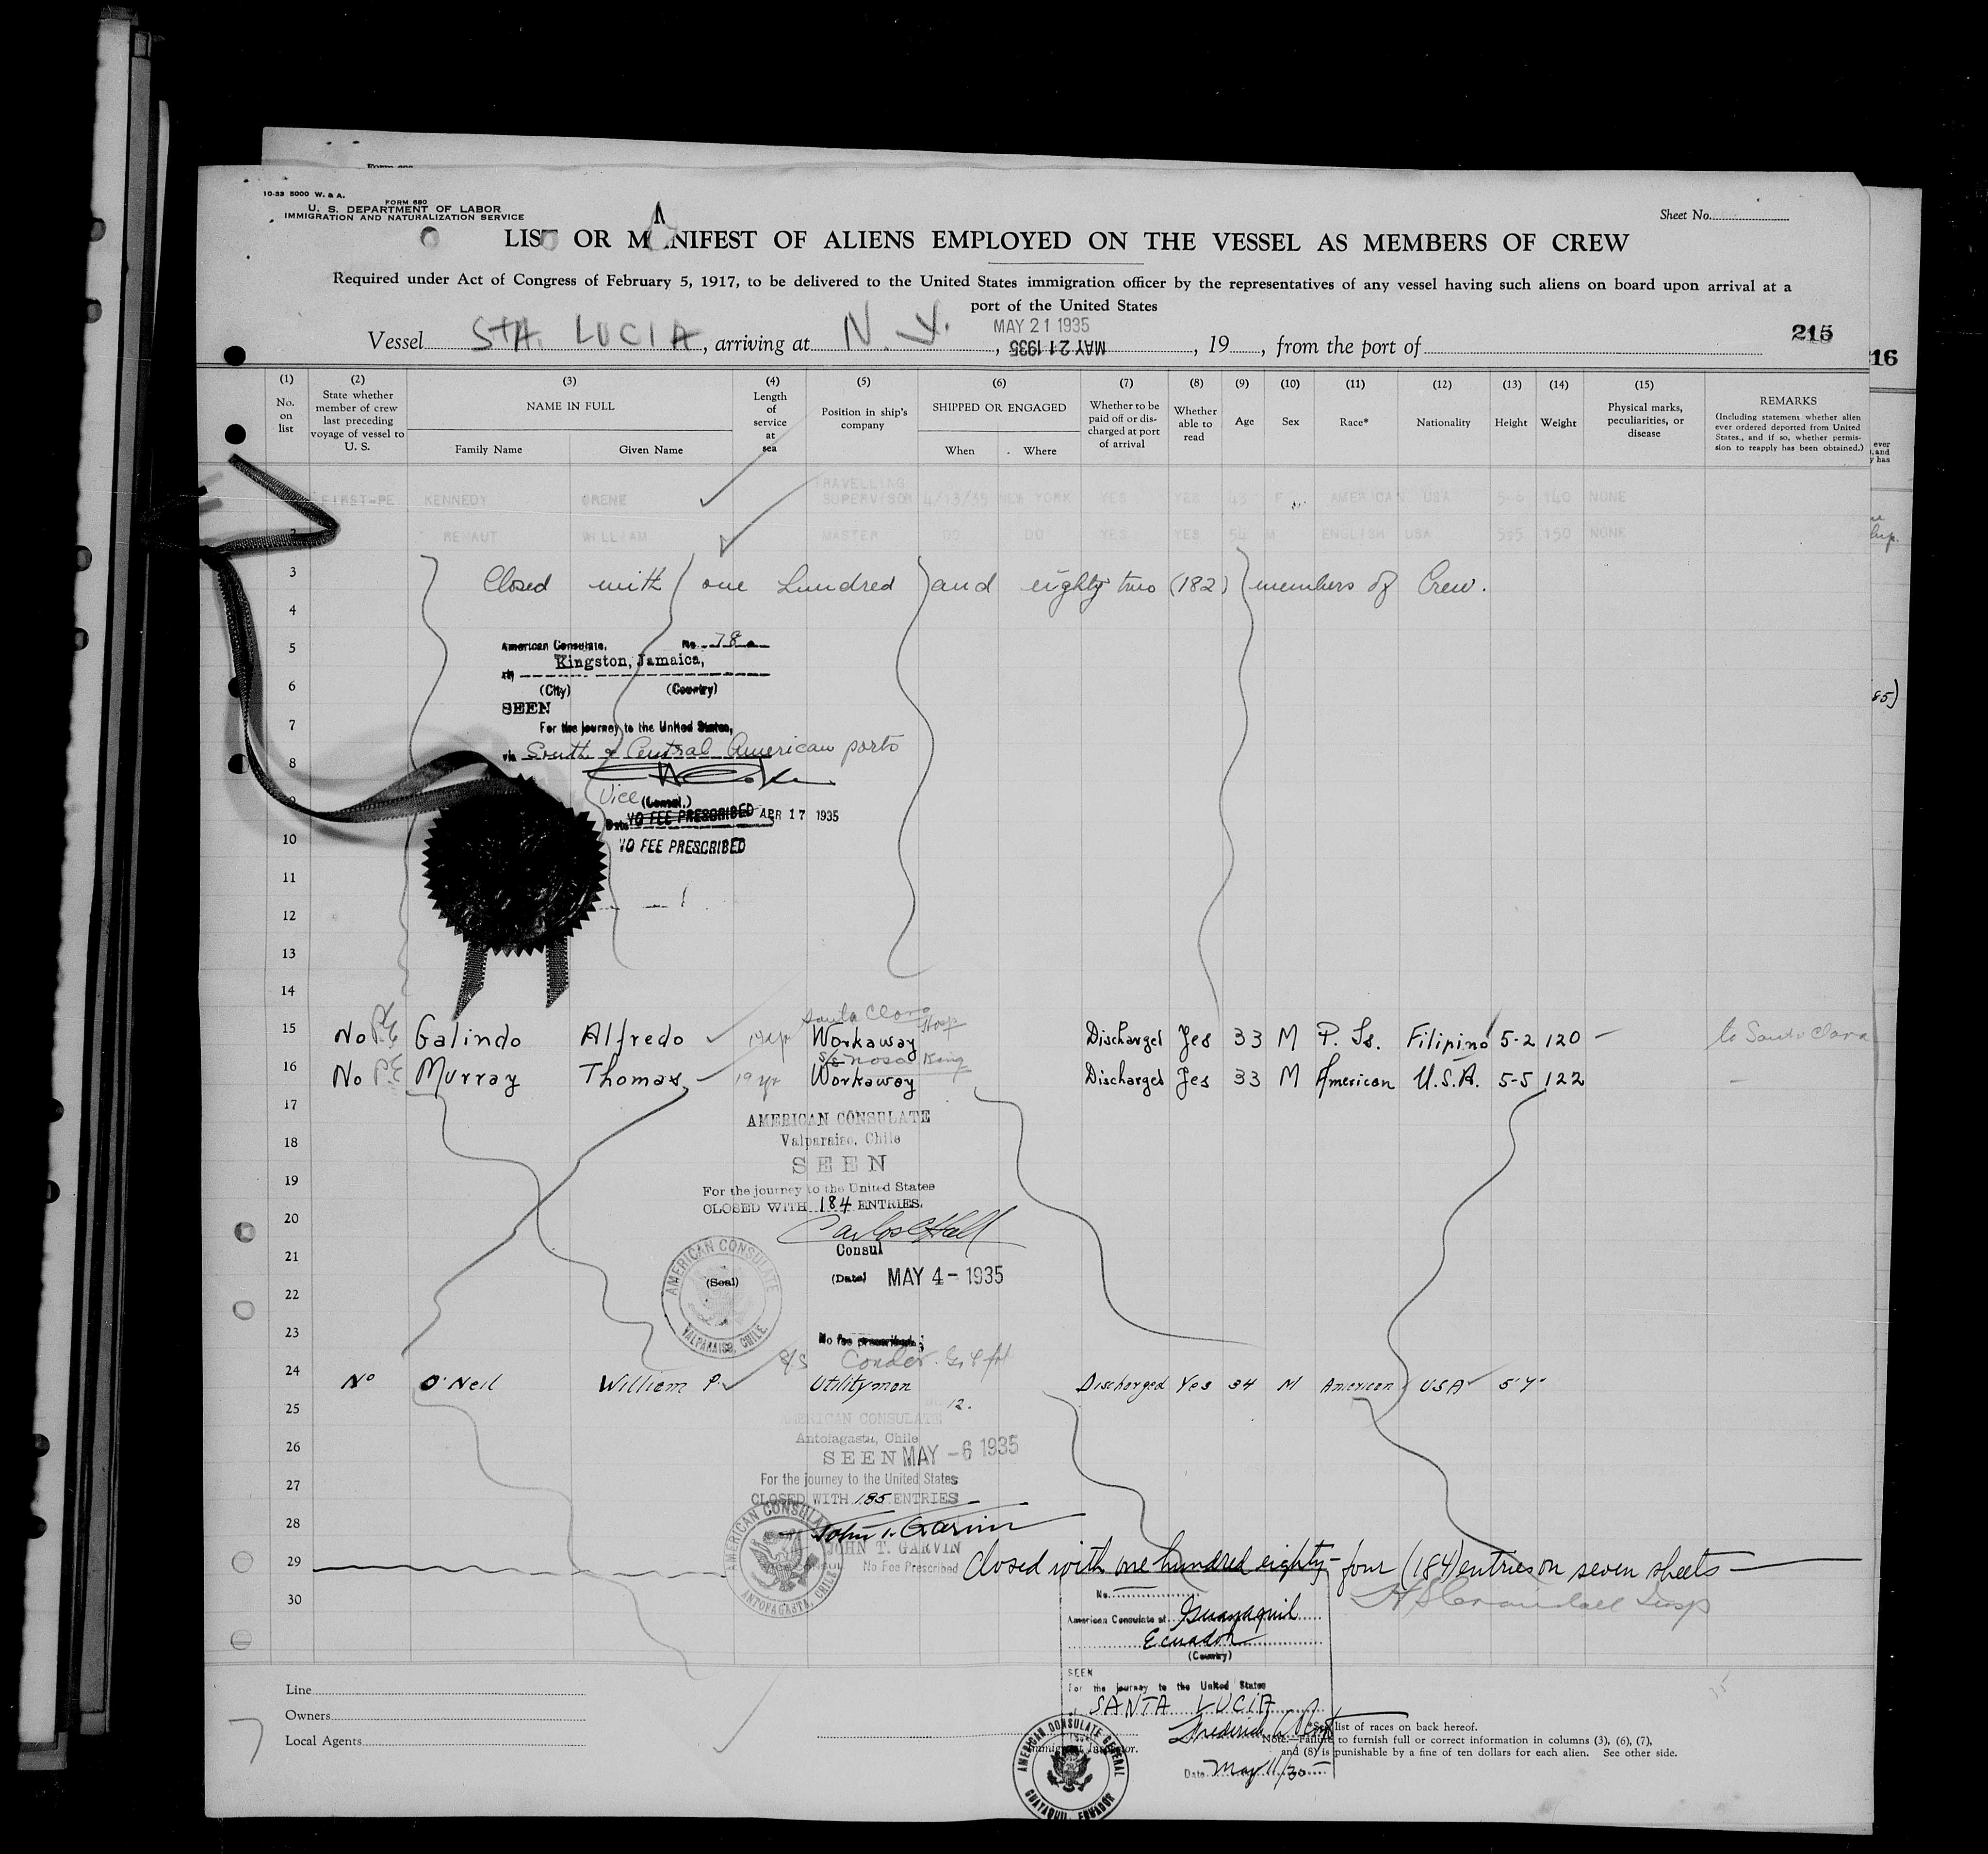 10-33 5000 W. & A.
FORM 680
U. S. DEPARTMENT OF LABOR
IMMIGRATION AND NATURALIZATION SERVICE
Sheet No.
LIST OR MANIFEST OF ALIENS EMPLOYED ON THE VESSEL AS MEMBERS OF CREW
Required under Act of Congress of February 5, 1917, to be delivered to the United States immigration officer by the representatives of any vessel having such aliens on board upon arrival at a
port of the United States
MAY 21 1935
Vessel STA. LUCIA, arriving at N. Y., MAY 21 1935, 19, from the port of
215
16
(1) (2) (3) (4) (5) (6) (7) (8) (9) (10) (11) (12) (13) (14) (15)
No. on list
State whether member of crew last preceding voyage of vessel to U. S.
NAME IN FULL
Family Name Given Name
Length of service at sea
Position in ship's company
SHIPPED OR ENGAGED
When Where
Whether to be paid off or discharged at port of arrival
Whether able to read
Age Sex Race* Nationality Height Weight
Physical marks, peculiarities, or disease
REMARKS
(Including statement whether alien ever ordered deported from United States, and if so, whether permission to reapply has been obtained.)
FIRST-PE KENNEDY ORENE TRAVELLING SUPERVISOR 4/13/35 NEW YORK YES YES 43 F AMERICAN USA 5-6 140 NONE
2 WILLIAM MASTER DO DO YES YES 54 M ENGLISH USA 150 NONE
3 Closed with one hundred and eighty two (182) members of Crew.
4
5 American Consulate, No. 78
Kingston, Jamaica,
6 (City) (Country)
SEEN
7 For the journey to the United States,
via South & Central American ports
8
Vice (Consul.)
Date NO FEE PRESCRIBED APR 17 1935
10 NO FEE PRESCRIBED
11
12
13
14
Santa Clara
15 No PE Galindo Alfredo Workaway Discharged Yes 33 M P. Is. Filipino 5-2 120 — to Santa Clara
16 No PE Murray Thomas 19 yr Workaway Discharged Yes 33 M American U.S.A. 5-5 122 —
17 AMERICAN CONSULATE
18 Valparaiso, Chile
SEEN
19 For the journey to the United States
CLOSED WITH 184 ENTRIES.
20 Carlos C Hall
21 Consul
(Seal) (Date) MAY 4 - 1935
AMERICAN CONSULATE
VALPARAISO, CHILE.
22
23 No fee prescribed;
S/S Condor
24 No O'Neil William P. Utilityman Discharged Yes 34 M American USA 5'7"
25 12.
AMERICAN CONSULATE
Antofagasta, Chile
26 SEEN MAY - 6 1935
27 For the journey to the United States
CLOSED WITH 185 ENTRIES
28 John T. Garvin
JOHN T. GARVIN
No Fee Prescribed
AMERICAN CONSULATE
ANTOFAGASTA, CHILE
29 Closed with one hundred eighty-four (184) entries on seven sheets
30
No.
American Consulate at Guayaquil
Ecuador
(Country)
SEEN
For the journey to the United States
SANTA LUCIA
Date May 11/35
AMERICAN CONSULATE GENERAL
GUAYAQUIL, ECUADOR
Line
Owners
Local Agents
Immigrant Inspector.
*See list of races on back hereof.
Note.—Failure to furnish full or correct information in columns (3), (6), (7),
and (8) is punishable by a fine of ten dollars for each alien. See other side.